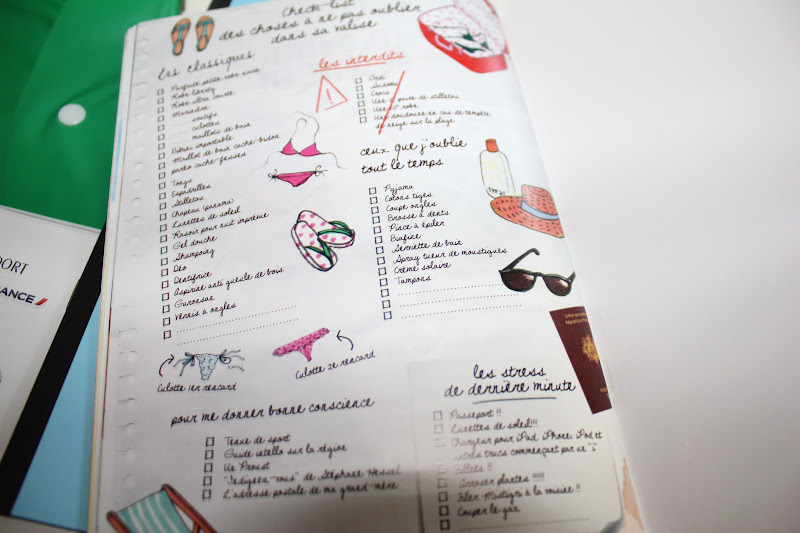 check-list
des choses à ne pas oublier
dans sa valise
les classiques
Parfaite petite robe noire
Robe liberty
Robe ultra courte
Marinière
..... soutifs
..... culottes
..... maillots de bain
Bikini importable
Maillot de bain cache-bidon
paréo cache-fesses
Tongs
Espadrilles
Stilettos
Chapeau (panama)
Lunettes de soleil
Rasoir pour nuit imprévue
Gel douche
Shampoing
Déo
Dentifrice
Aspirine anti gueule de bois
Guronsan
Vernis à ongles
les interdits
Sudoku
Crocs
Une paire de stilettos
Une robe
Une doudoune en cas de tempête
de neige sur la plage
ceux que j'oublie
tout le temps
Pyjama
Cotons tiges
Coupe ongles
Brosse à dents
Pince à épiler
Biafine
Serviette de bain
Spray tueur de moustiques
Crème solaire
Tampons
Culotte 1er rencard
Culotte 2e rencard
pour me donner bonne conscience
Tenue de sport
Guide intello sur la région
Un Proust
"Indignez-vous" de Stéphane Hessel
L'adresse postale de ma grand-mère
les stress
de dernière minute
Passeport !!
Lunettes de soleil!!!
Chargeur pour iPad, iPhone, iPod et
autres trucs commençant par un "i"
Billets !!
Arroser plantes !!!!!
Filer Mistigri à la voisine !!
Couper le gaz
PORT
ANCE